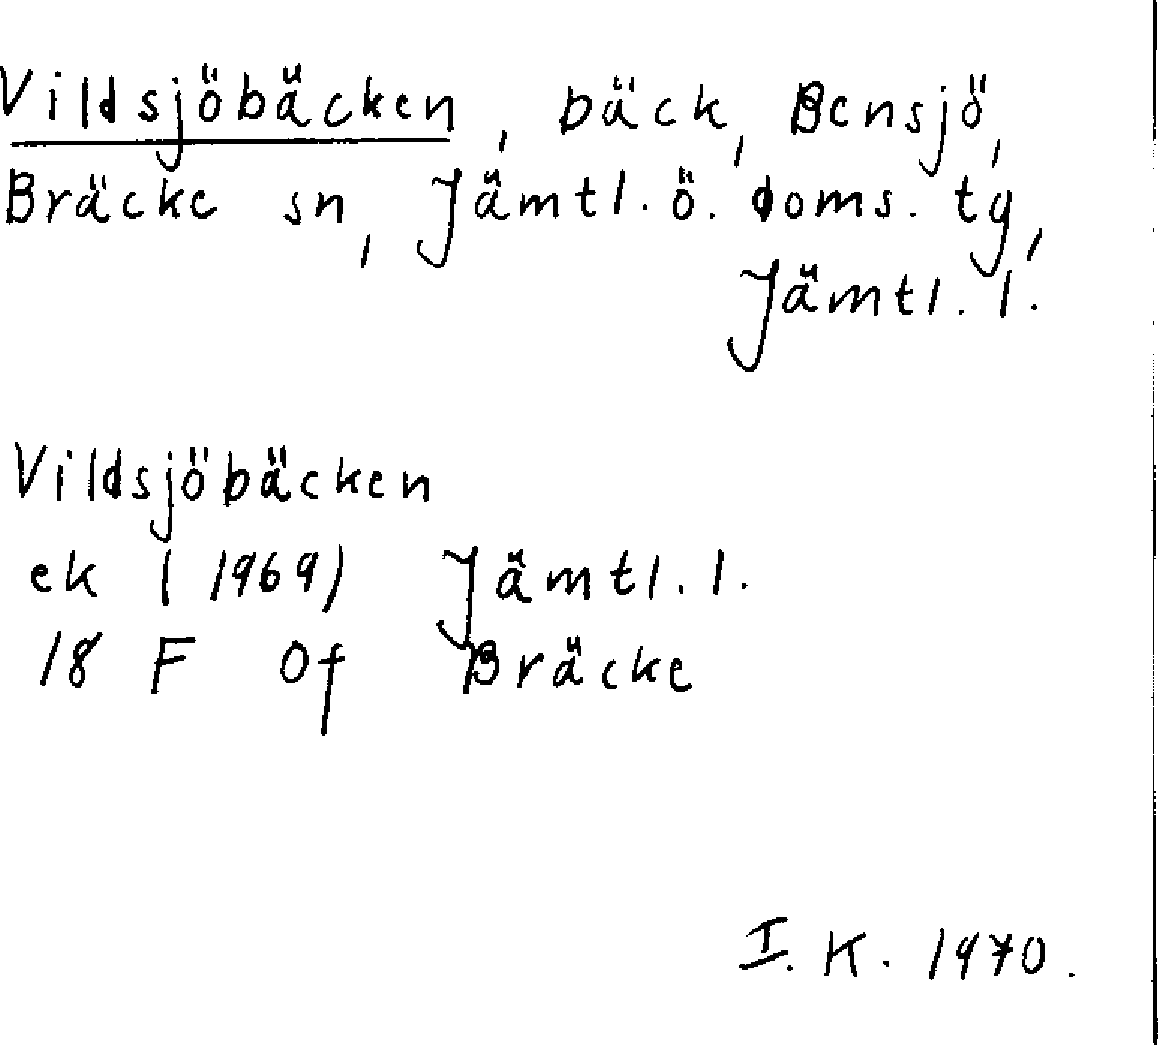 Vildsjöbäcken, bäck, Bensjö,
Bräcke sn, Jämtl. ö. doms. tg,
Jämtl. l.
Vildsjöbäcken
ek (1969) Jämtl. l.
18 F 0f Bräcke
I. K. 1970.